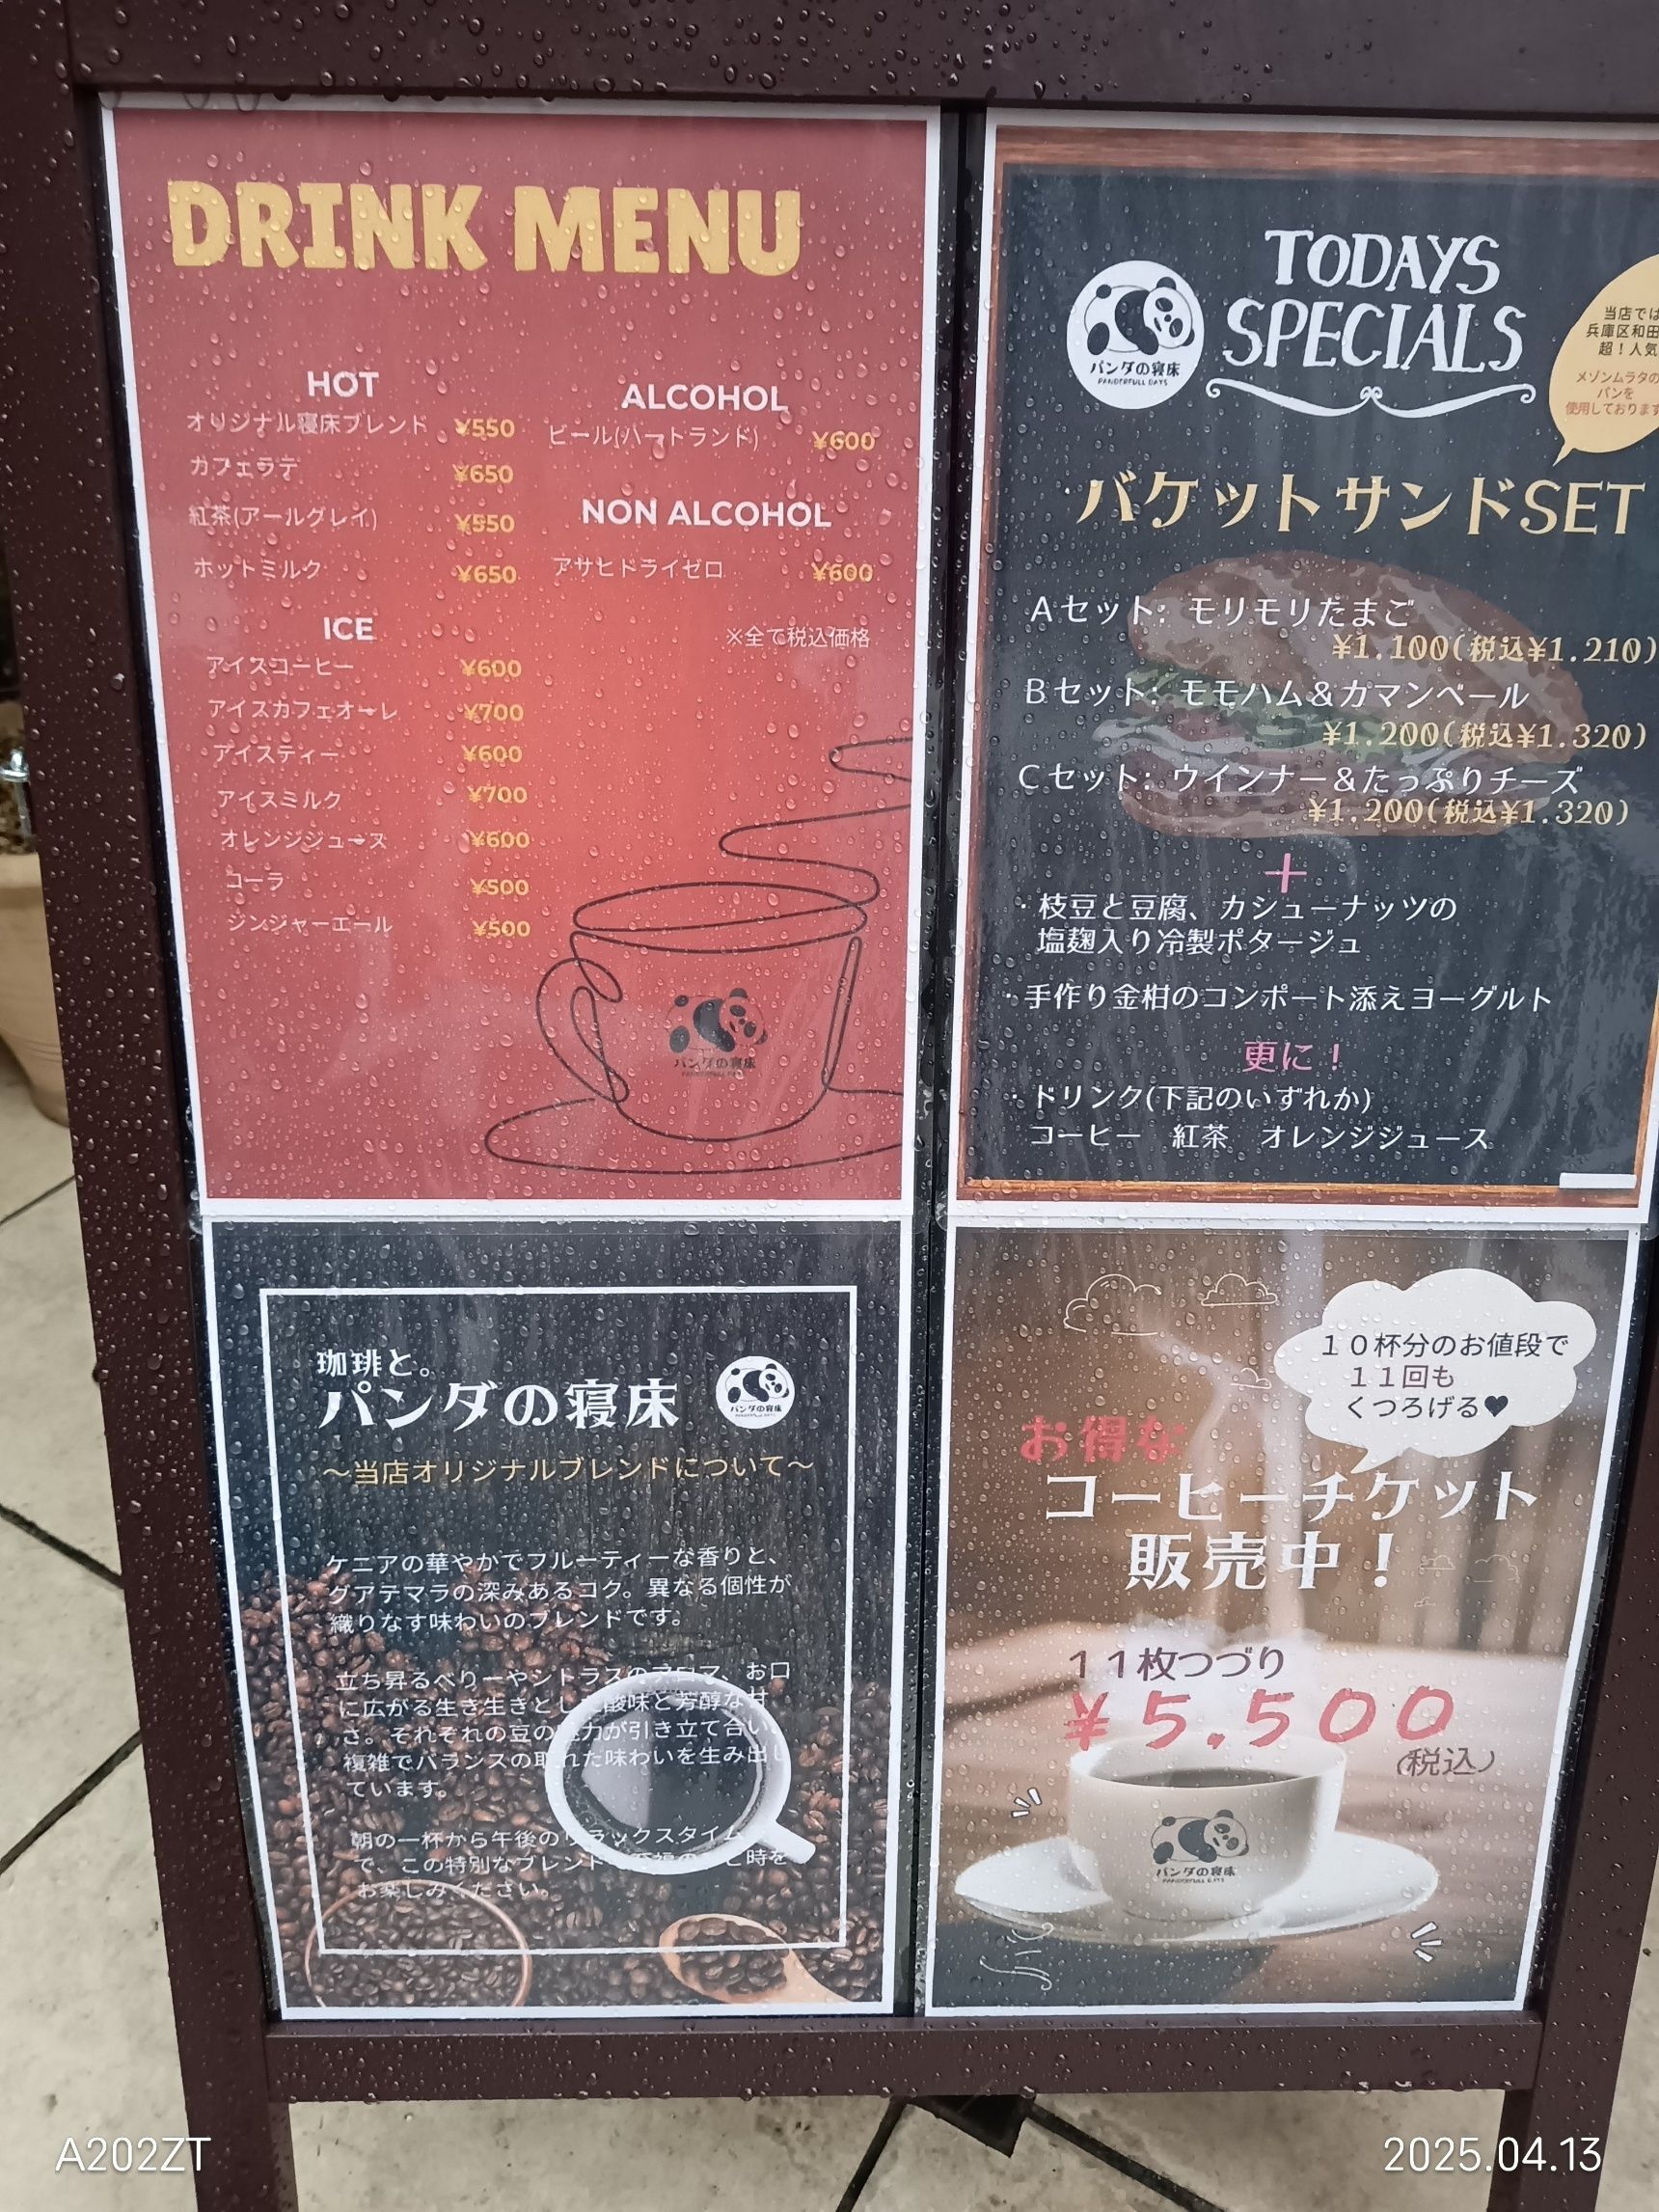 DRINK MENU
HOT
オリジナル寝床ブレンド ¥550
カフェラテ ¥650
紅茶(アールグレイ) ¥550
ホットミルク ¥650
ICE
アイスコーヒー ¥600
アイスカフェオーレ ¥700
アイスティー ¥600
アイスミルク ¥700
オレンジジュース ¥600
コーラ ¥500
ジンジャーエール ¥500
ALCOHOL
ビール(ハートランド) ¥600
NON ALCOHOL
アサヒドライゼロ ¥600
※全て税込価格
パンダの寝床
TODAYS
SPECIALS
パンダの寝床
PANDERFULL DAYS
当店では
兵庫区和田
超！人気
メゾンムラタの
パンを
使用しております
バケットサンドSET
Aセット: モリモリたまご
¥1.100(税込¥1.210)
Bセット: モモハム&カマンベール
¥1.200(税込¥1.320)
Cセット: ウインナー&たっぷりチーズ
¥1.200(税込¥1.320)
+
・枝豆と豆腐、カシューナッツの
塩麹入り冷製ポタージュ
・手作り金柑のコンポート添えヨーグルト
更に！
・ドリンク(下記のいずれか)
コーヒー 紅茶 オレンジジュース
珈琲と。
パンダの寝床
パンダの寝床
〜当店オリジナルブレンドについて〜
ケニアの華やかでフルーティーな香りと、
グアテマラの深みあるコク。異なる個性が
織りなす味わいのブレンドです。
立ち昇るベリーやシトラスのアロマ、お口
に広がる生き生きとした酸味と芳醇な甘
さ。それぞれの豆の魅力が引き立て合い、
複雑でバランスの取れた味わいを生み出し
ています。
朝の一杯から午後のリラックスタイム
で、この特別なブレンド 至福の ひと時を
お楽しみください。
10杯分のお値段で
11回も
くつろげる♥
お得な
コーヒーチケット
販売中！
11枚つづり
¥5.500
(税込)
パンダの寝床
PANDERFULL DAYS
A202ZT
2025.04.13